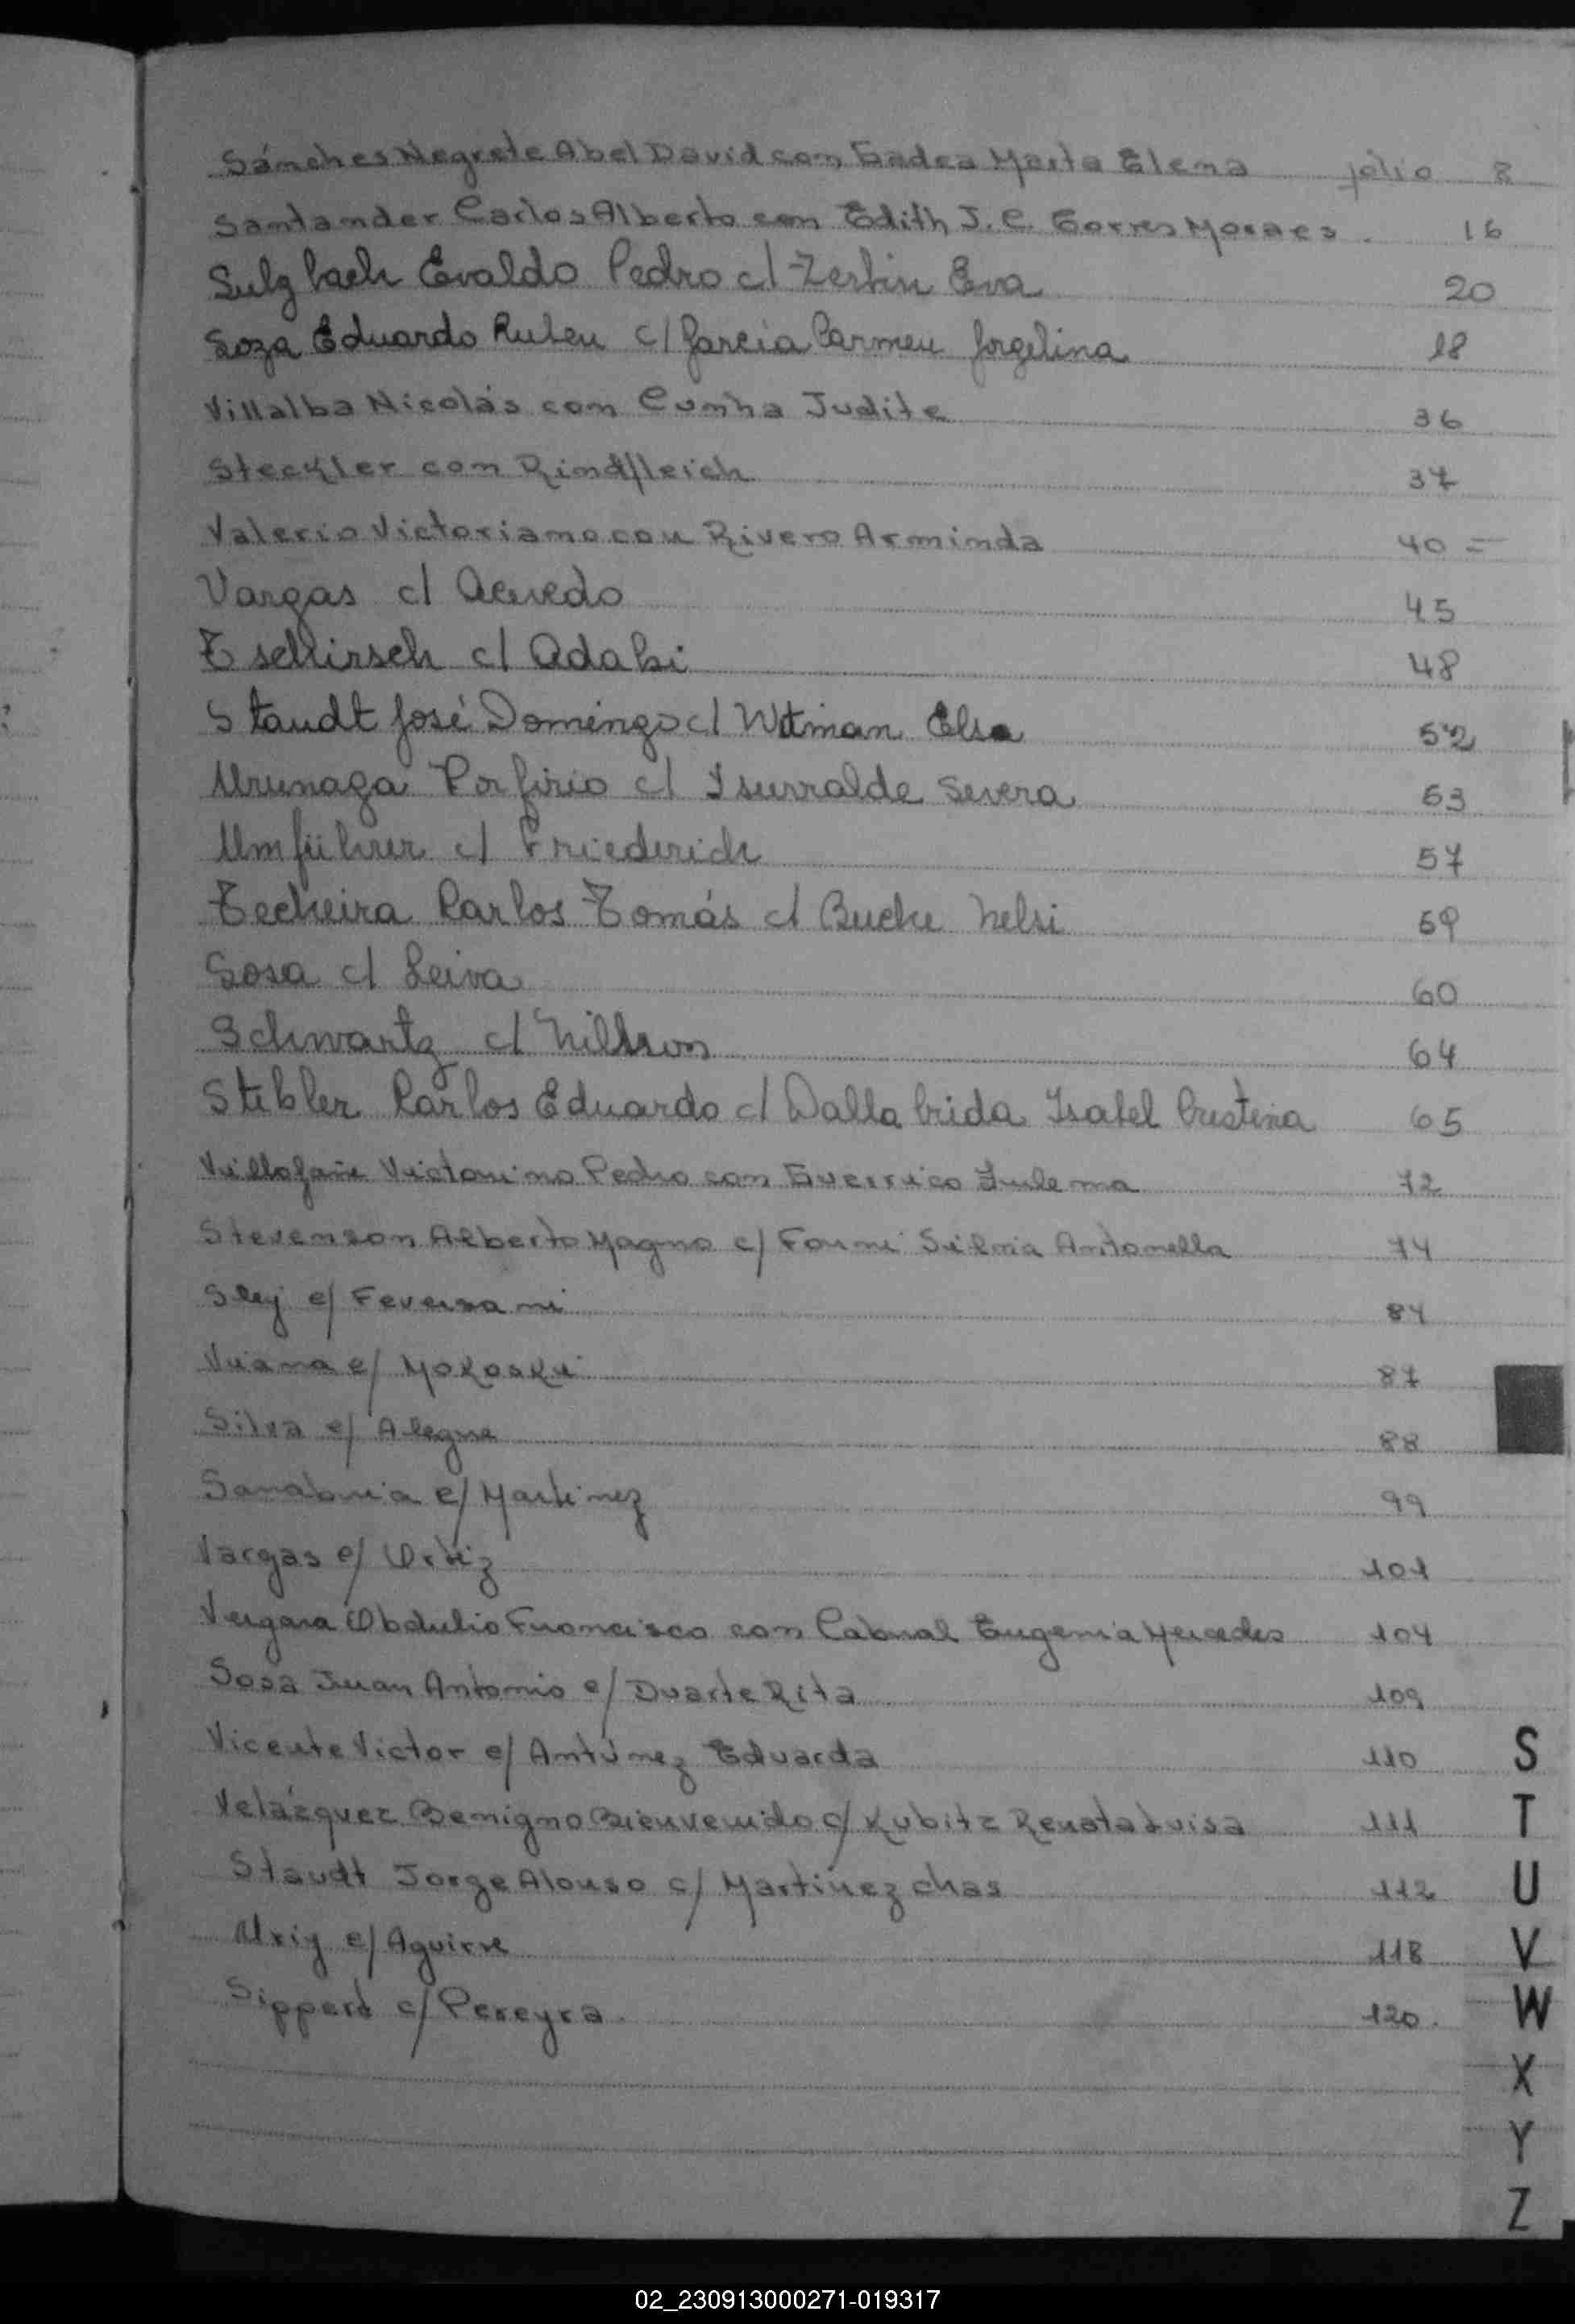 Sánches Negrete Abel David con Gadea Marta Elena folio 8
Santander Carlos Alberto con Edith J. C. Torres Moraes. 16
Sulzbach Evaldo Pedro c/ Zerbin Eva 20
Soza Eduardo Ruben c/ García Carmen Jorgelina 18
Villalba Nicolás con Cunha Judite 36
Steckler con Rindfleich 37
Valerio Victoriano con Rivero Arminda 40 =
Vargas c/ Acevedo 45
Tschirsch c/ Adabi 48
Staudt José Domingo c/ Witman Elsa 52
Urunaga Porfirio c/ Isurralde Severa 53
Umführer c/ Friederich 57
Techeira Carlos Tomás c/ Buche Nelsi 59
Sosa c/ Leiva 60
Schwartz c/ Nilsson 64
Stebler Carlos Eduardo c/ Dalla brida Isabel Cristina 65
Villafañe Victorino Pedro con Guerrico Zulema 72
Stevenson Alberto Magno c/ Silvia Antonella 74
Sley c/ Feversani 84
Viana c/ Mokoski 87
Silva c/ Alegre 88
Sanabria c/ Martinez 99
Vargas c/ Ortiz 101
Vergara Obdulio Francisco con Cabral Eugenia Mercedes 104
Sosa Juan Antonio c/ Duarte Rita 109
Vicente Victor c/ Antúnez Eduarda 110
Velázquez Benigno Bienvenido c/ Kubitz Renata Luisa 111
Staudt Jorge Alonso c/ Martinez chas 112
c/ Aguirre 118
Sippert c/ Pereyra. 120.
S
T
U
V
W
X
Y
Z
02_230913000271-019317